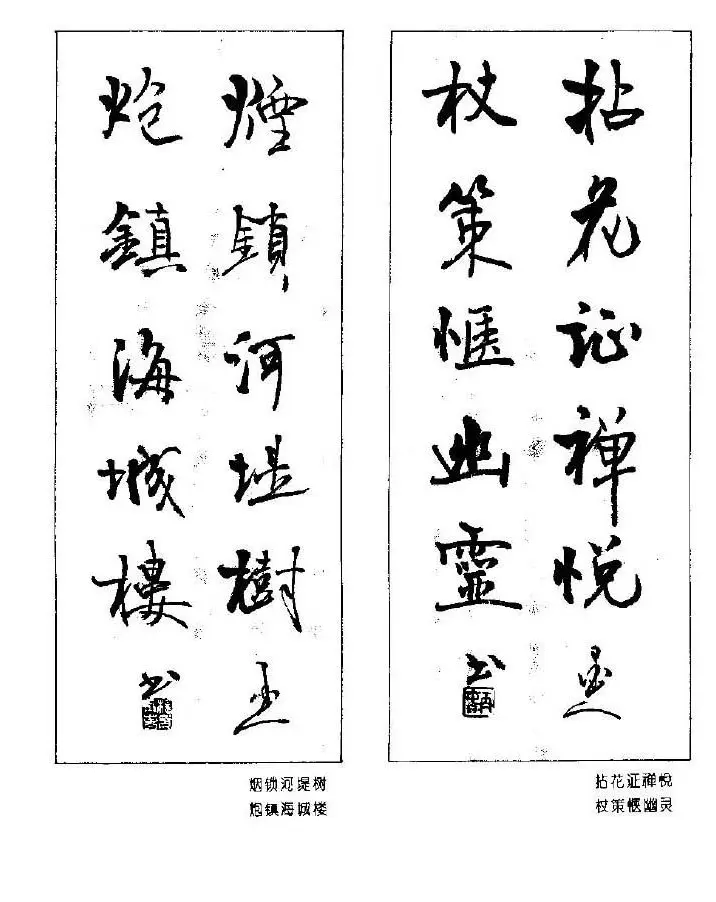 拈花证禅悦
杖策惬幽靈 书
煙鎖河堤樹
炮鎮海城樓 书
拈花证禅悦
杖策惬幽灵
烟锁河堤树
炮镇海城楼